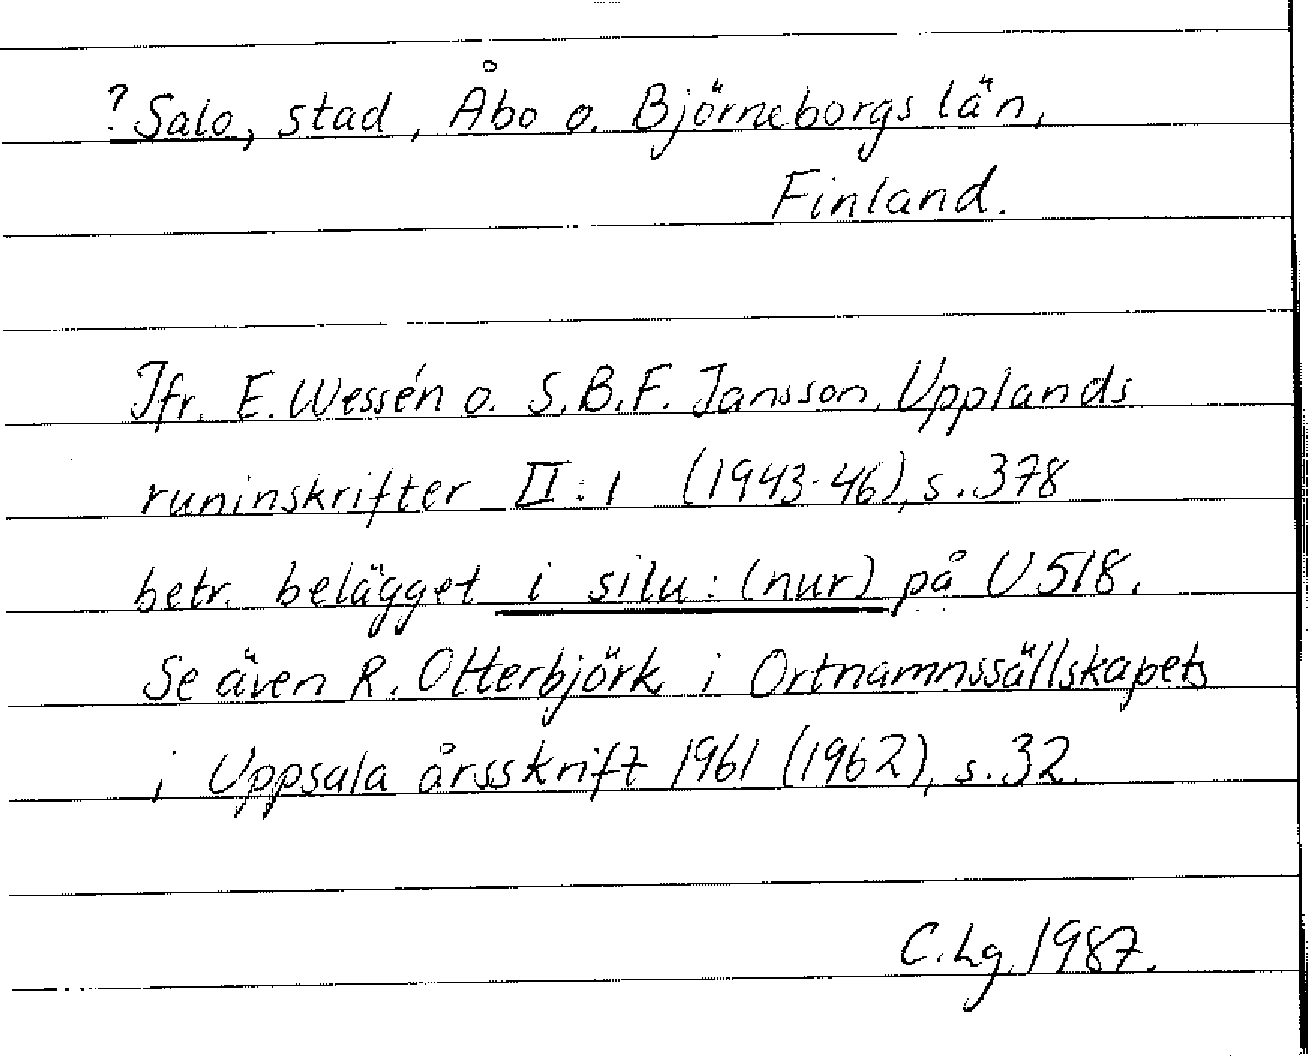 ? Salo, stad, Åbo o. Björneborgs län,
Finland.
Jfr. E. Wessén o. S.B.F. Jansson, Upplands
runinskrifter II:1 (1943-46), s. 378
betr. belägget i silu : (nur) på U 518.
Se även R. Otterbjörk i Ortnamnssällskapets
i Uppsala årsskrift 1961 (1962), s. 32.
C. Lg. 1987.